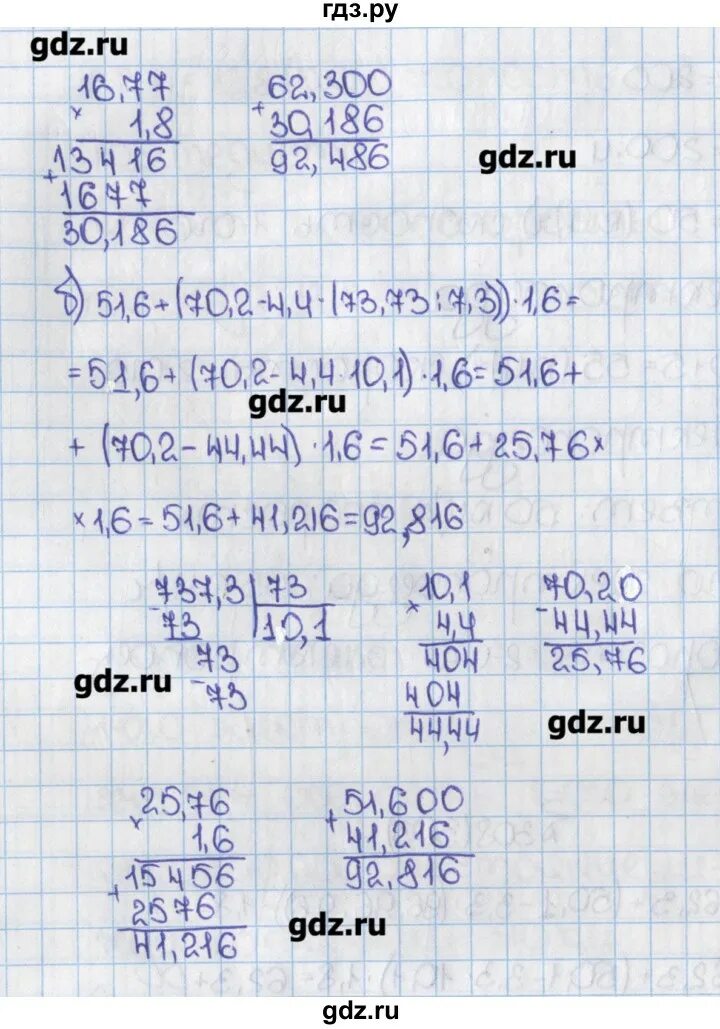 гдз.ру
gdz.ru
16,77
× 1,8
13416
+ 1677
30,186
62,300
+ 30,186
92,486
gdz.ru
б) 51,6 + (70,2 - 4,4 · (73,73 : 7,3)) · 1,6 =
= 51,6 + (70,2 - 4,4 · 10,1) · 1,6 = 51,6 +
gdz.ru
+ (70,2 - 44,44) · 1,6 = 51,6 + 25,76 ×
× 1,6 = 51,6 + 41,216 = 92,816
737,3 | 73
- 73 | 10,1
73
- 73
10,1
× 4,4
404
404
44,44
70,20
- 44,44
25,76
gdz.ru
gdz.ru
25,76
× 1,6
15456
+ 2576
41,216
51,600
+ 41,216
92,816
gdz.ru
gdz.ru